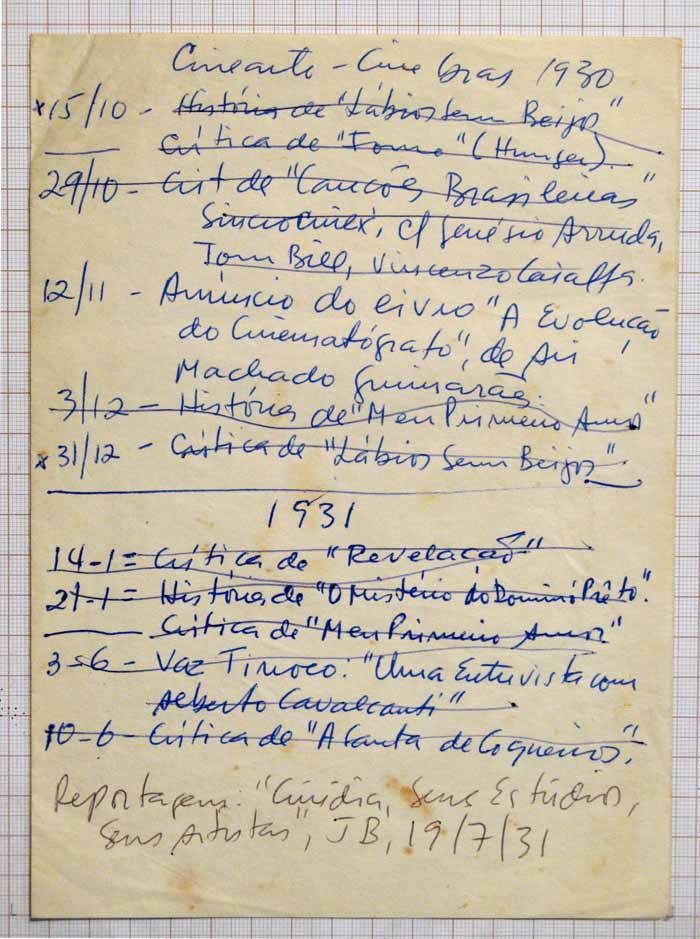 Cinearte - Cine Bras 1930
x15/10 - História de "Lábios Sem Beijos"
Crítica de "Fome" (Hunger).
29/10 - Crít de "Canções Brasileiras"
Sincrocinex, c/ Genésio Arruda,
Tom Bill, Vincenzo Caiaffa.
12/11 - Anúncio do livro "A Evolução
do Cinematógrafo", de
Machado Guimarães.
3/12 - História de "Meu Primeiro Amor"
x31/12 - Crítica de "Lábios Sem Beijos"
1931
14-1 = Crítica de "Revelação"
21-1 = História de "O Mistério do Dominó Prêto".
Crítica de "Meu Primeiro Amor"
3-6 - Vaz Tinoco: "Uma Entrevista com
Alberto Cavalcanti"
10-6 - Crítica de "A Canta de Coqueiros".
Reportagem: "Cinédia, Seus Estúdios,
Seus Artistas", JB, 19/7/31